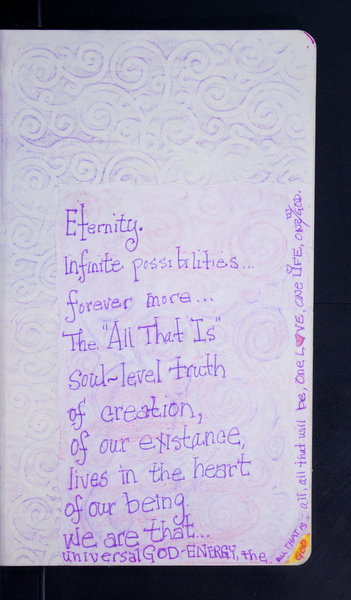 Eternity.
Infinite possibilities...
forever more...
The "All That Is"
Soul~level truth
of creation,
of our existance,
lives in the heart
of our being.
We are that...
universal GOD-ENERGY, the
ALL THAT IS GOD
all, all that will be, One LOVE, ONE LIFE, ONE GOD.